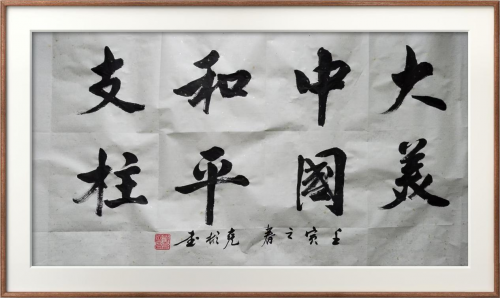 大美
中國
和平
支柱
壬寅之春 克彬書